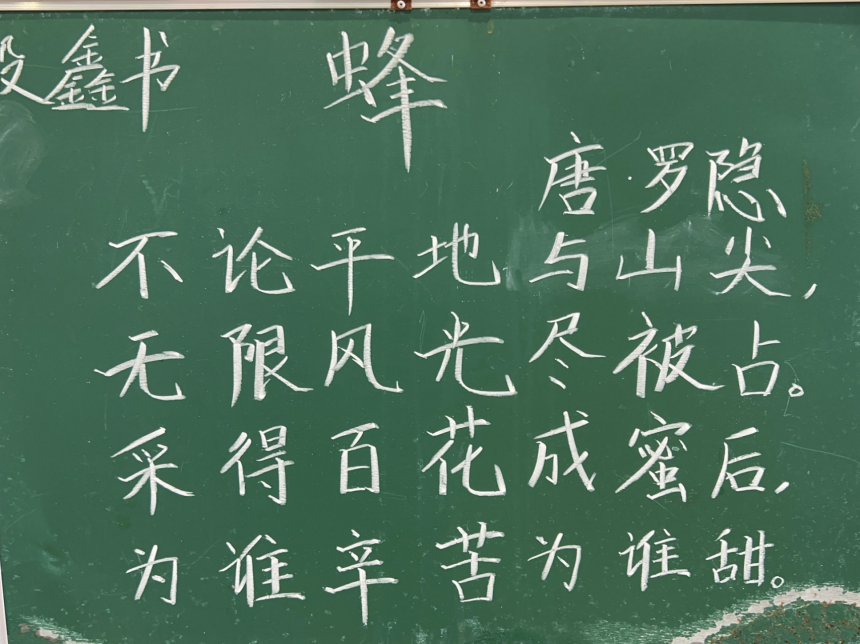 段鑫书
蜂
唐·罗隐
不论平地与山尖，
无限风光尽被占。
采得百花成蜜后，
为谁辛苦为谁甜。